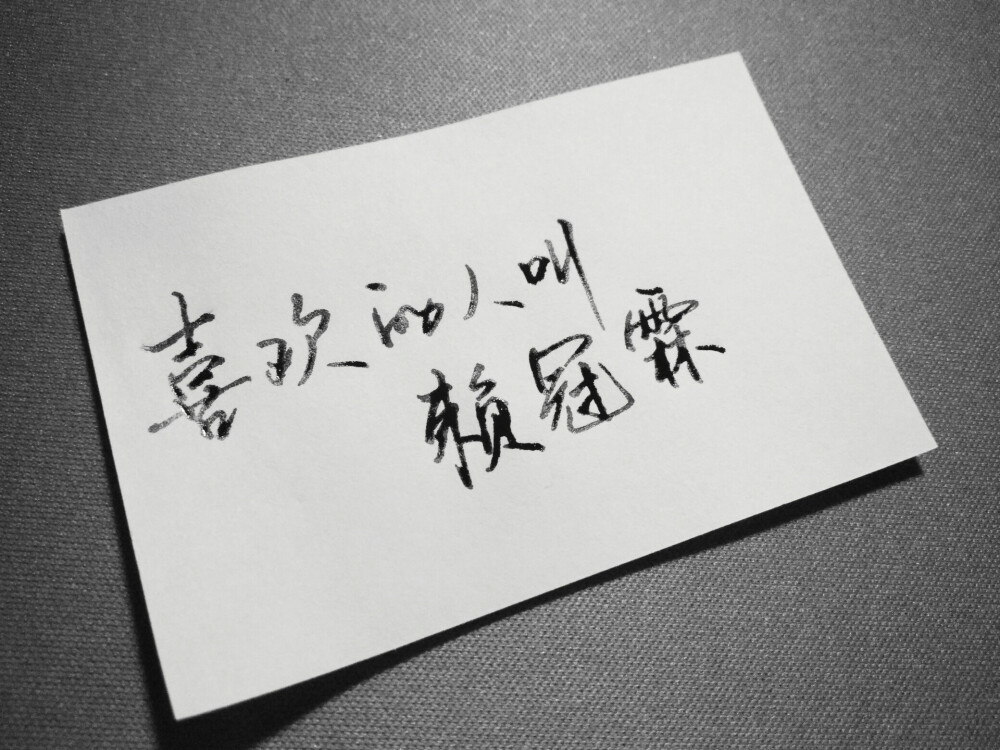 喜欢的人叫
赖冠霖